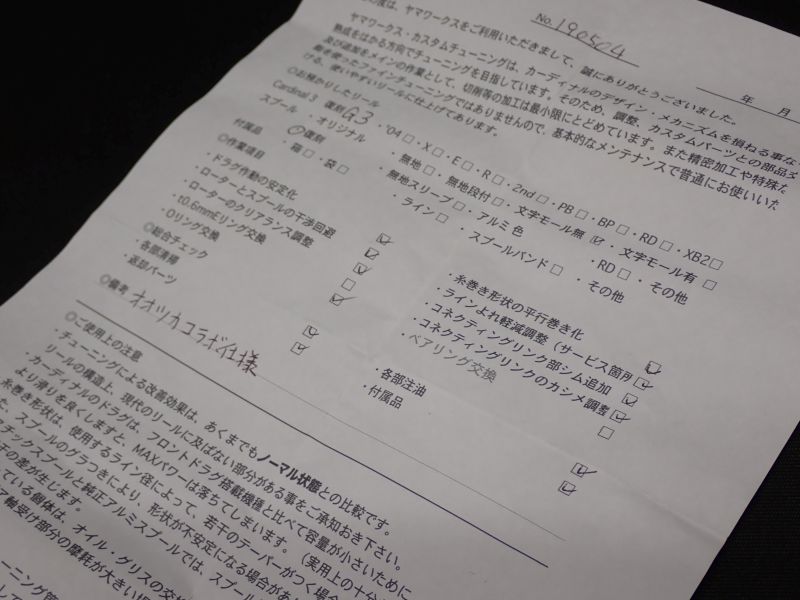 No. 190504
年 月
度は、ヤマワークスをご利用いただきまして、誠にありがとうございました。
ヤマワークス・カスタムチューニングは、カーディナルのデザイン・メカニズムを損ねる事な
熟成をはかる方向でチューニングを目指しています。そのため、調整、カスタムパーツとの部品交
及び追加をメインの作業として、切削等の加工は最小限にとどめています。また精密加工や特殊な
を使ったファインチューニングではありませんので、基本的なメンテナンスで普通にお使いいた
ける、使いやすいリールに仕上げてあります。
◎お預かりしたリール
Cardinal 3 復刻 G3 ・'04□ ・X□ ・E□ ・R□ ・2nd□ ・PB□ ・BP□ ・RD□ ・XB2□
スプール ・オリジナル ・無地□ ・無地段付□ ・文字モール無☑ ・文字モール有□
・復刻 無地スリーブ□ ・アルミ 色 ・RD□ ・その他
付属品 ・箱□ ・袋□ ・ライン□ ・スプールバンド□ ・その他
◎作業項目
・ドラグ作動の安定化 ☑ ・糸巻き形状の平行巻き化 ☑
・ローターとスプールの干渉回避 ☑ ・ラインよれ軽減調整（サービス箇所 ☑
・ローターのクリアランス調整 ☑ ・コネクティングリンク部シム追加 ☑
・t0.6mmEリング交換 □ ・コネクティングリンクのカシメ調整 ☑
・Oリング交換 ☑ ・ベアリング交換 □
◎総合チェック
・各部清掃 ☑ ・各部注油 ☑
・返却パーツ ☑ ・付属品 ☑
◎備考 オオツカコラボ仕様
◎ご使用上の注意
・チューニングによる改善効果は、あくまでもノーマル状態との比較です。
リールの構造上、現代のリールに及ばない部分がある事をご承知おき下さい。
・カーディナルのドラグは、フロントドラグ搭載機種と比べて容量が小さいために
より滑りを良くしますと、MAXパワーは落ちてしまいます。（実用上の十分
糸巻き形状は、使用するライン径によって、若干のテーパーがつく場合
た、スプールのグラつきにより、形状が不安定になる場合があ
チックスプールと純正アルミスプールでは、スプー
子の差が生じます。
ている個体は、オイル・グリスの交
ア軸受け部分の摩耗が大きい
ーニング